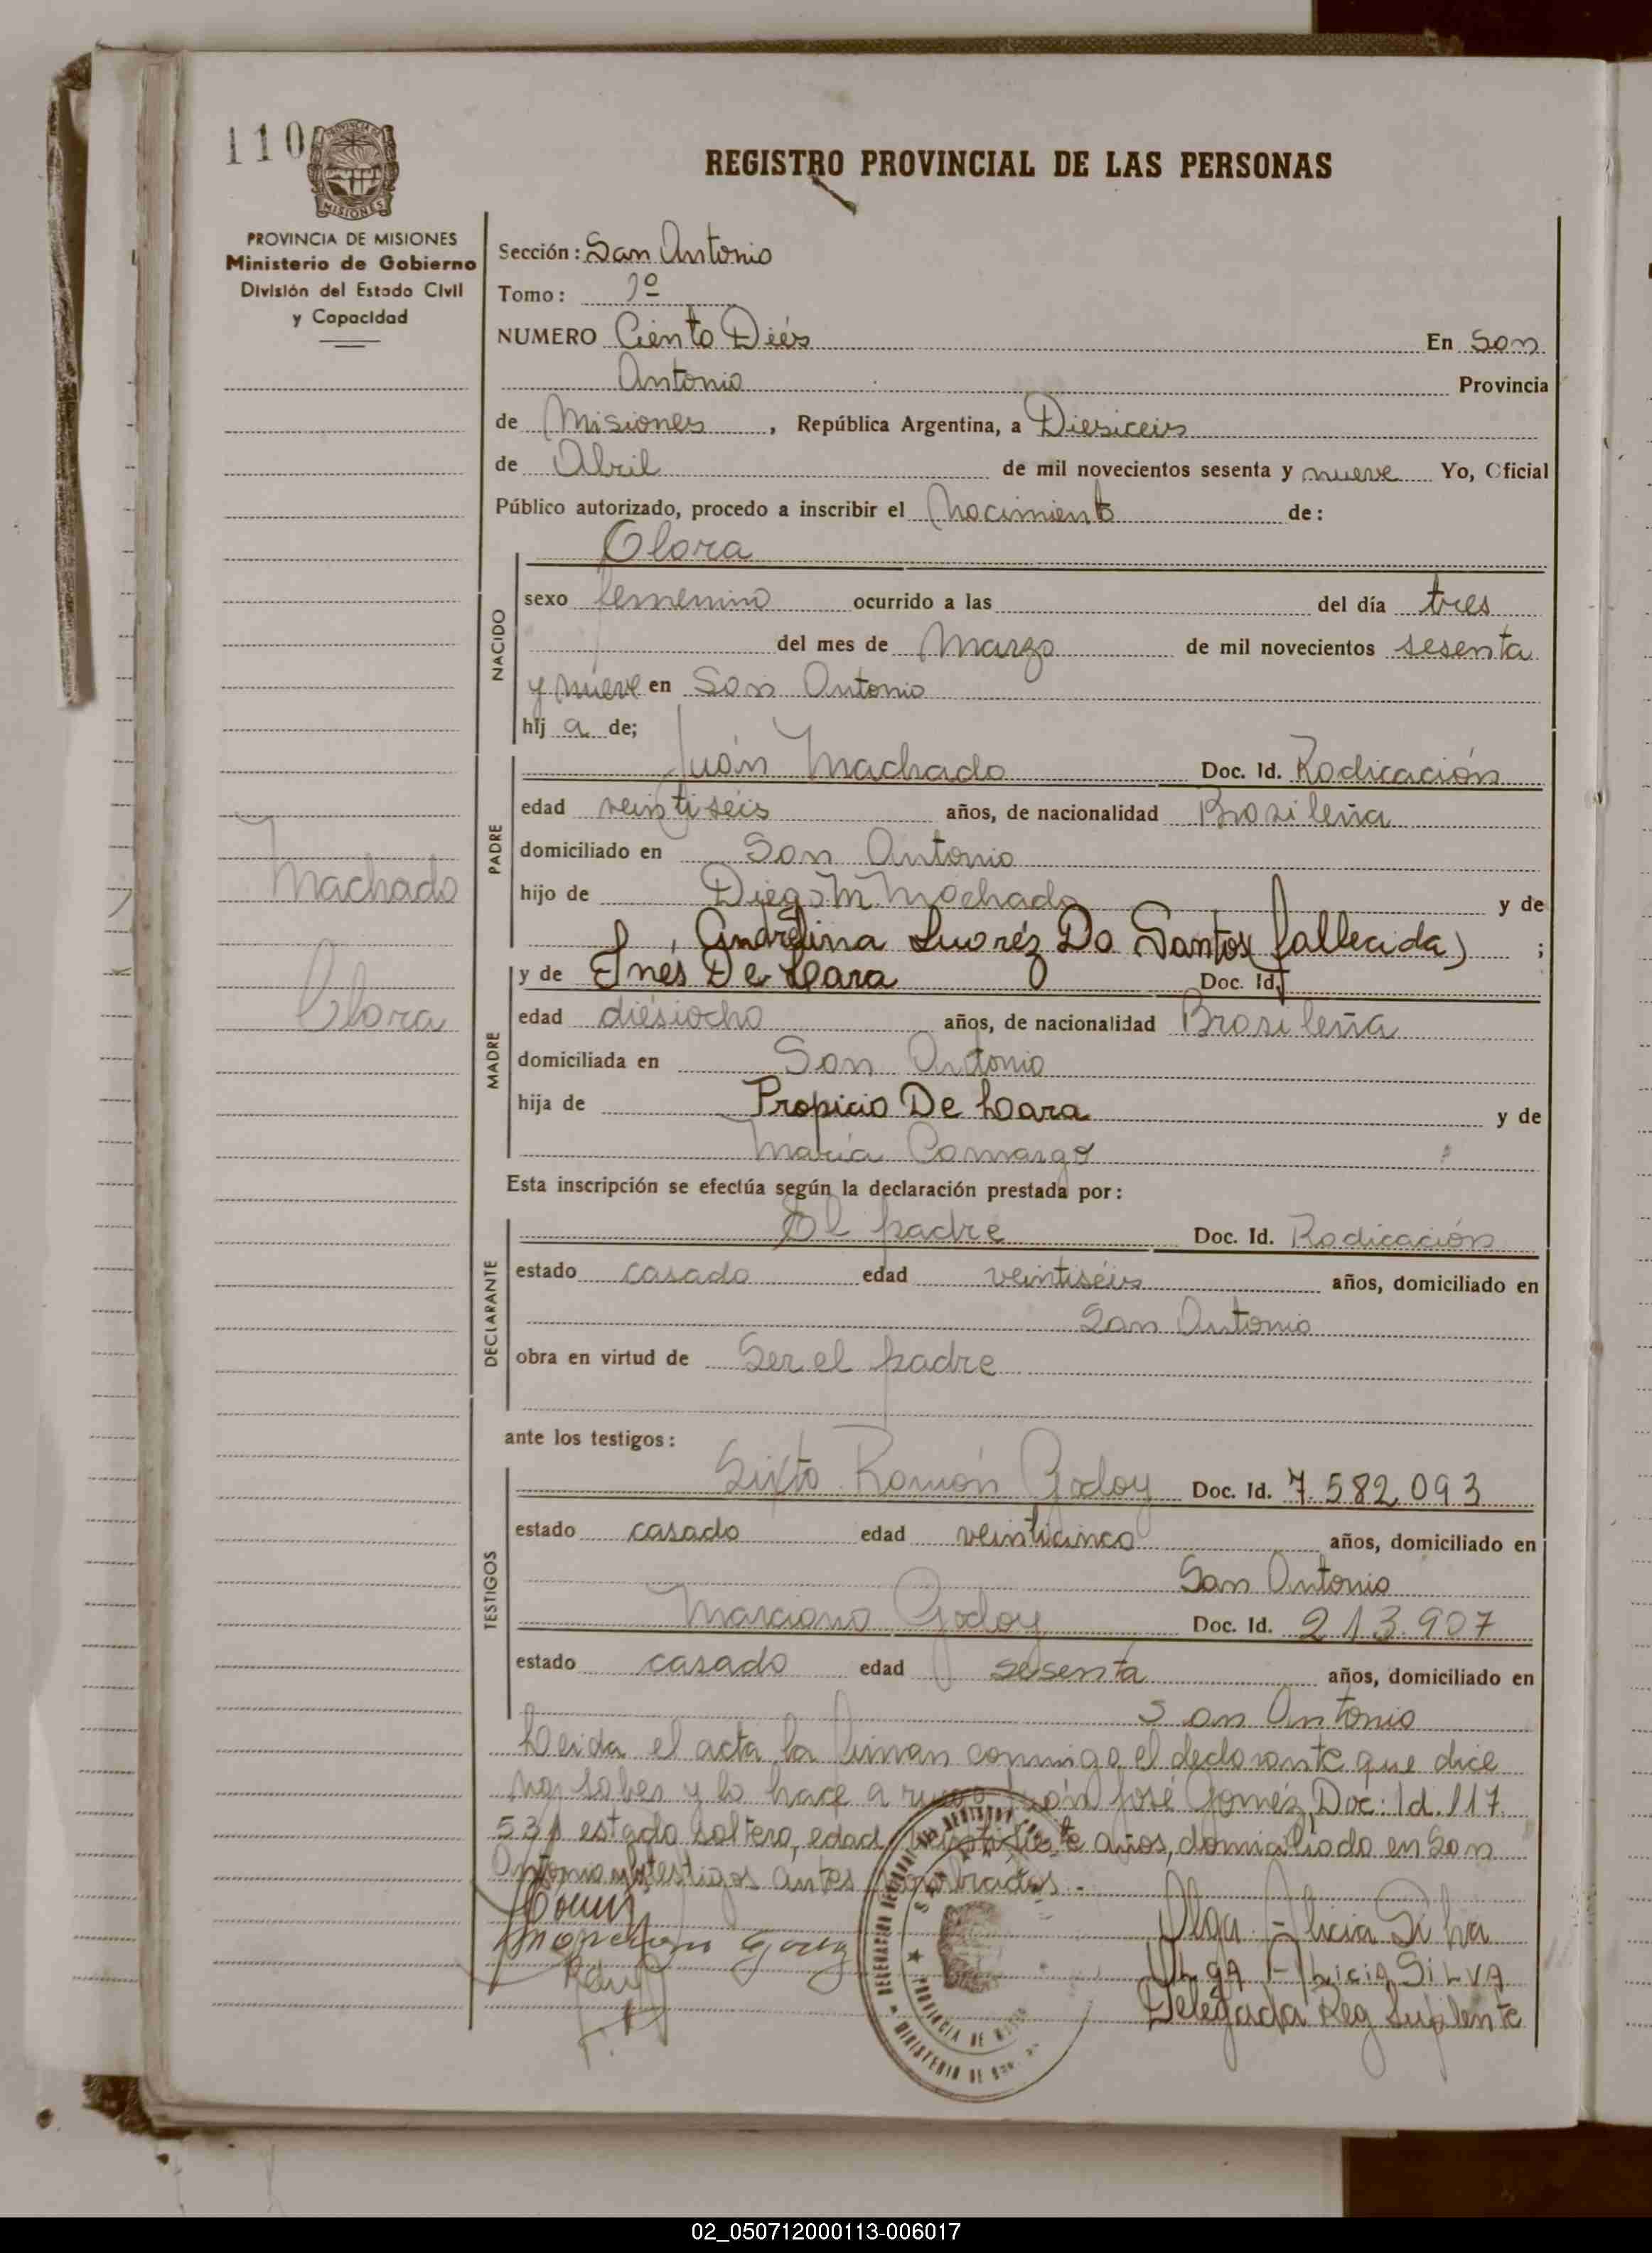 110
PROVINCIA DE
MISIONES
REGISTRO PROVINCIAL DE LAS PERSONAS
PROVINCIA DE MISIONES
Ministerio de Gobierno
División del Estado Civil
y Capacidad
Sección: San Antonio
Tomo: 1º
NUMERO Ciento Diés En San
Antonio Provincia
de Misiones, República Argentina, a Diesiceis
de Abril de mil novecientos sesenta y nueve Yo, Oficial
Público autorizado, procedo a inscribir el Nacimiento de:
Clora
NACIDO
sexo femenino ocurrido a las del día tres
del mes de Marzo de mil novecientos sesenta
y nueve en San Antonio
hij a de;
PADRE
Juán Machado Doc. Id. Radicación
edad veintiseis años, de nacionalidad Brasileña
domiciliado en San Antonio
hijo de Diego M. Machado y de
Andrelina Suaréz Do Santos (fallecida) ;
MADRE
y de Ines De Lara Doc. Id.
edad diésiocho años, de nacionalidad Brasileña
domiciliada en San Antonio
hija de Propicio De Lara y de
María Camargo
Machado
Clora
Esta inscripción se efectúa según la declaración prestada por:
DECLARANTE
El padre Doc. Id. Radicación
estado casado edad veintiséis años, domiciliado en
San Antonio
obra en virtud de Ser el padre
ante los testigos:
TESTIGOS
Sixto Ramón Godoy Doc. Id. 7.582.093
estado casado edad veinticinco años, domiciliado en
San Antonio
Marciano Godoy Doc. Id. 213.907
estado casado edad sesenta años, domiciliado en
San Antonio
Leida el acta la firman conmigo el declarante que dice
no saber y lo hace a ruego Juán José Goméz, Doc. Id. 117
531 estado soltero, edad años, domiciliado en San
Antonio y testigos antes nombrados.-
Olga Alicia Silva
OLGA ALICIA SILVA
Delegada Reg Suplente
PROVINCIA DE
MINISTERIO DE
02_050712000113-006017